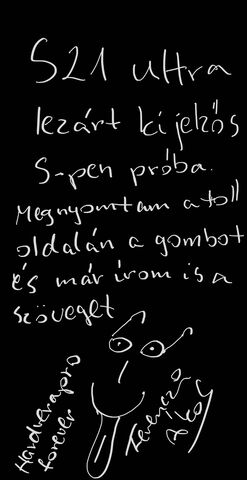 S21 ultra
lezárt kijelzős
S-pen próba.
Megnyomtam a toll
oldalán a gombot
és már írom is a
szöveget
Hardverapro
forever